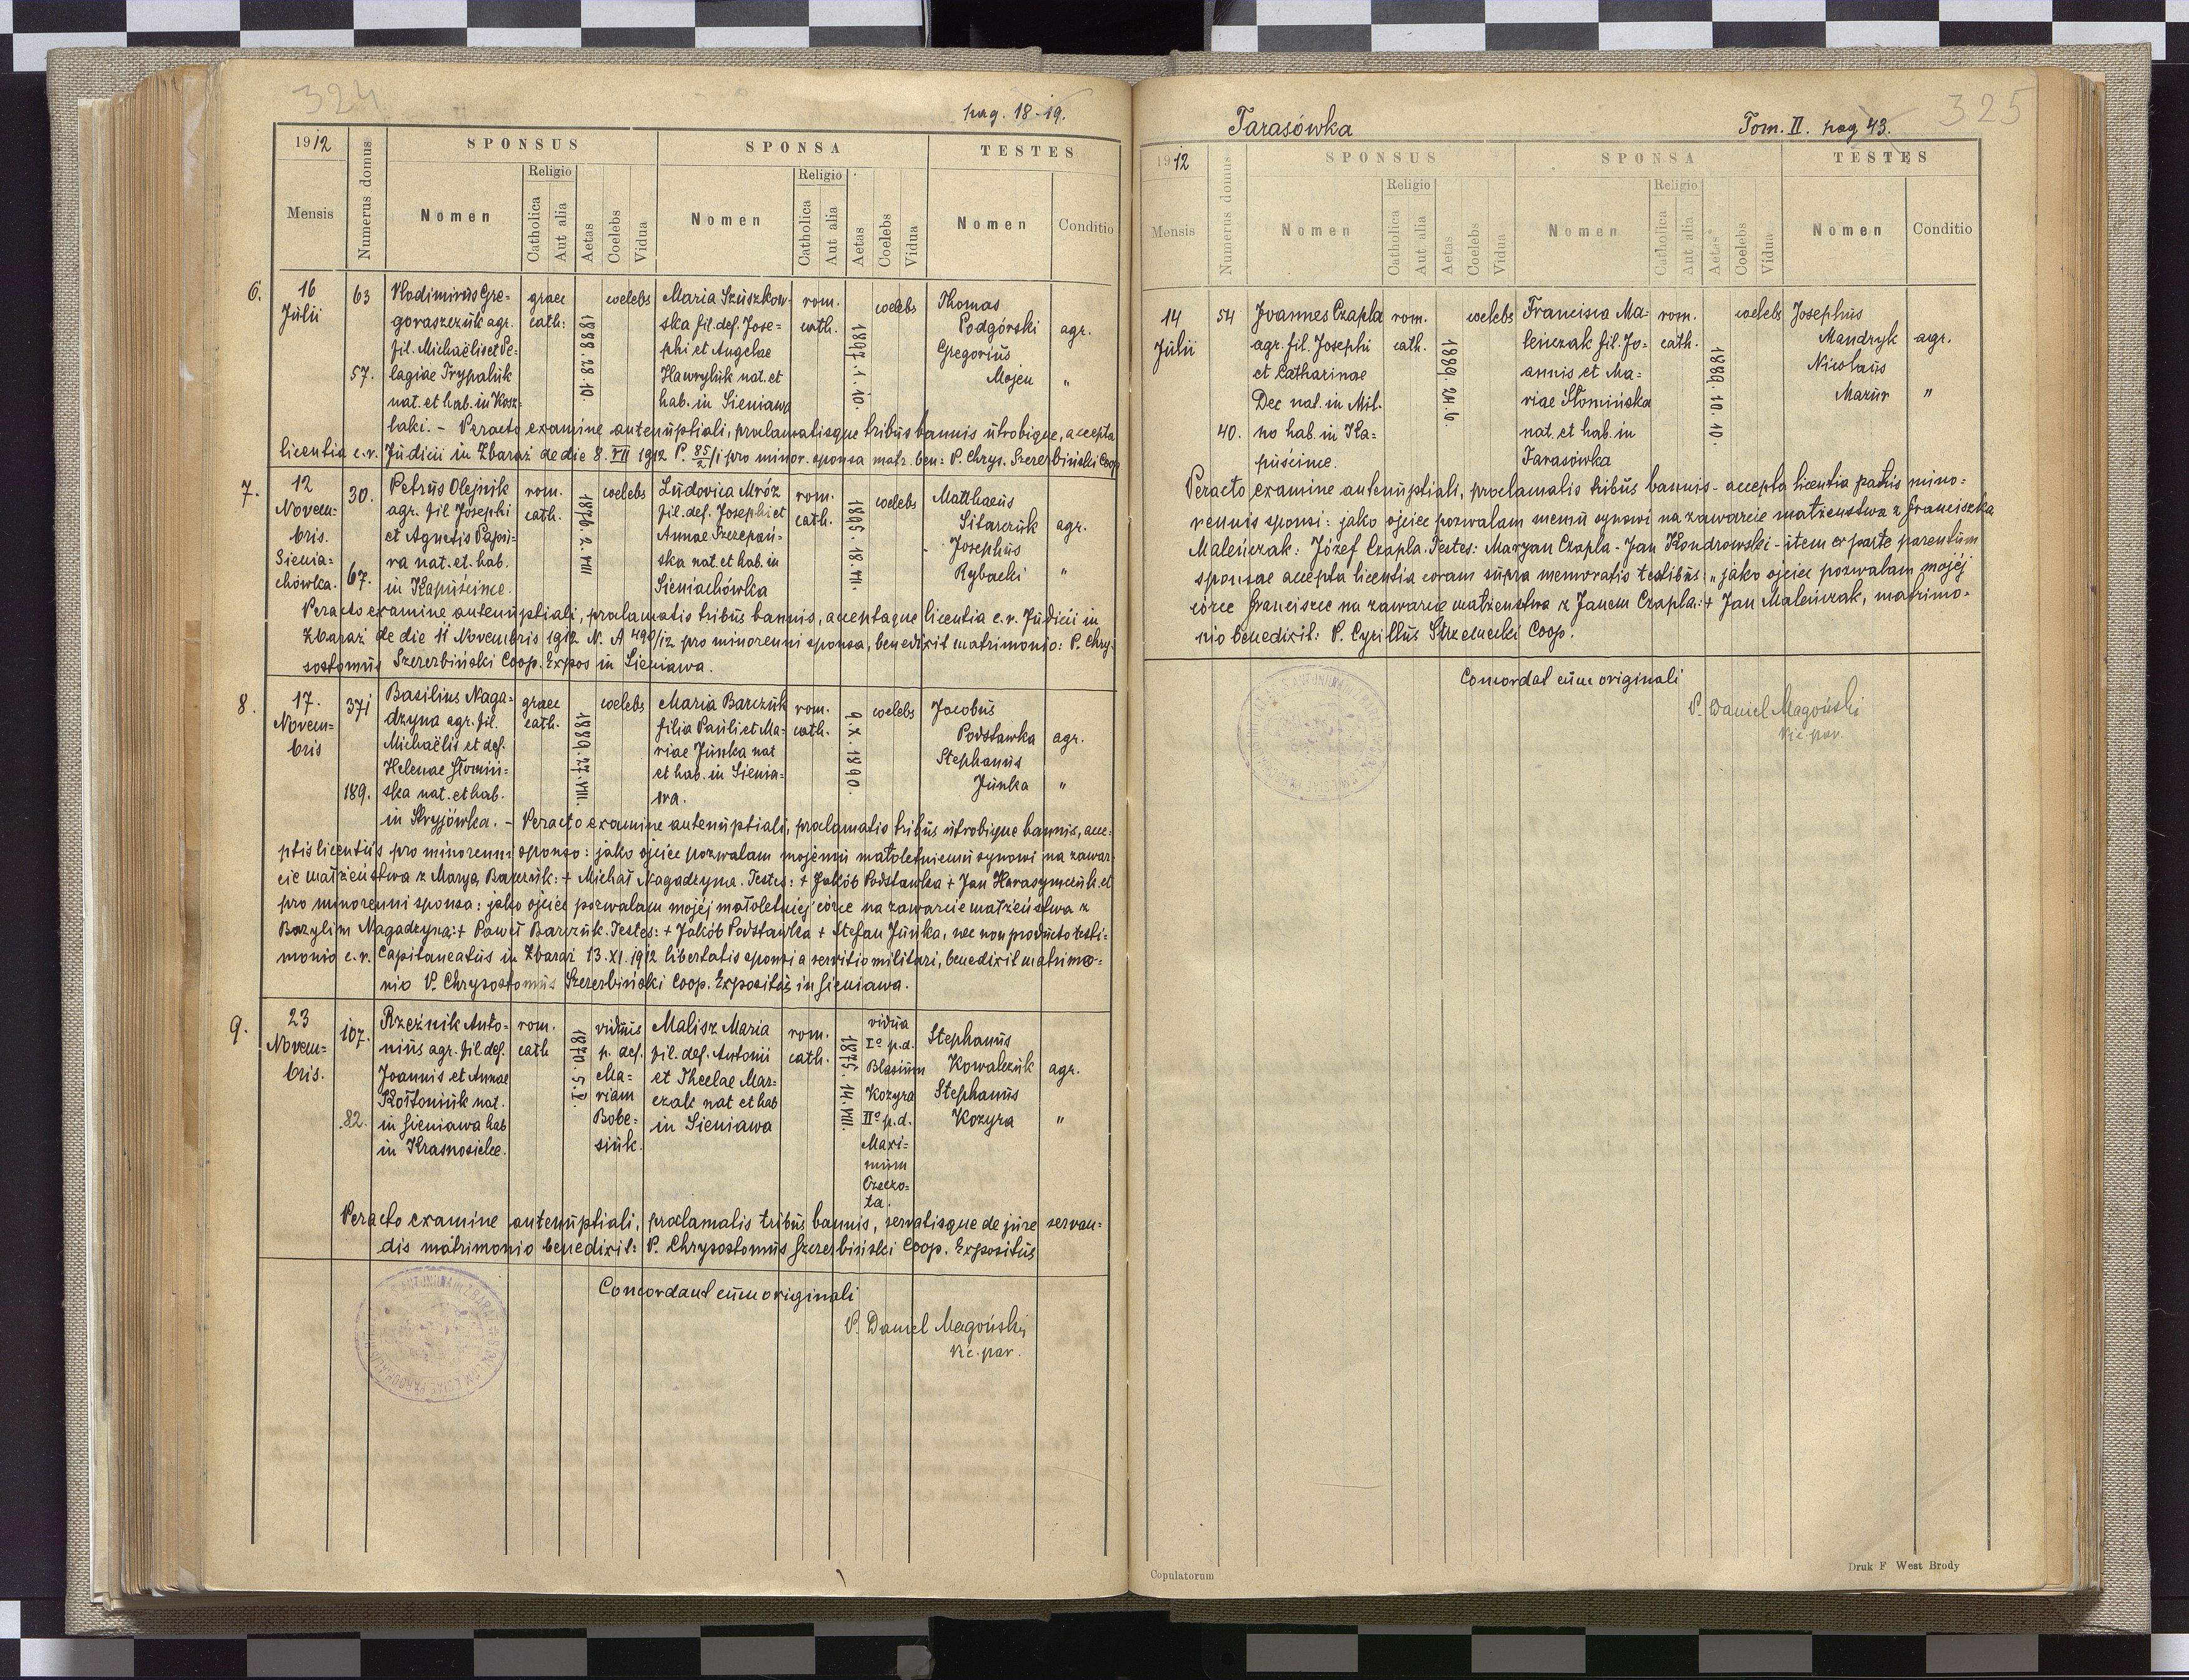 324
pag. 18-19.
1912
Mensis
Numerus domus
SPONSUS
Nomen
Religio
Catholica
Aut alia
Aetas
Coelebs
Vidua
SPONSA
Nomen
Religio
Catholica
Aut alia
Aetas
Coelebs
Vidua
TESTES
Nomen
Conditio
6.
16
Julii
63
57.
Vladimirus Gre=
goraszczuk agr.
fil. Michaëlis et Pe=
lagiae Trypaluk
nat. et hab. in Kosz=
laki. – Peracto examine antenuptiali, proclamatisque tribus bannis utrobique, accepta
licentia c.r. Judicii in Zbaraż de die 8. VII 1912 P. 85/2/1 pro minor. sponsa matr. ben: P. Chrys. Szczerbiński Coop.
graec
cath:
1888. 28. 10.
coelebs
Maria Szuszkow-
ska fil. def. Jose=
phi et Angelae
Hawryluk nat. et
hab. in Sieniawa
rom.
cath.
1897. 1. 10.
coelebs
Thomas
Podgórski
Gregorius
Mojen
agr.
"
7.
12
Novem=
bris.
Sienia=
chówka.
30.
67.
Petrus Olejnik
agr. fil Josephi
et Agnetis Papu=
ra nat. et. hab.
in Kapuścince.
rom.
cath.
1876. 2. VIII
coelebs
Ludovica Mróz
fil. def. Josephi et
Annae Szczepań=
ska nat. et hab. in
Sieniachówka
rom.
cath.
1895. 18. VII.
coelebs
Matthaeus
Sitarczuk
Josephus
Rybacki
agr.
"
Peracto examine antenuptiali, proclamatis tribus bannis, acceptaque licentia c.r. Judicii in
Zbaraż de die 11 Novembris 1912 N. A 490/12 pro minorenni sponsa, benedixit matrimonio: P. Chry=
sostomus Szczerbiński Coop. Expos in Sieniawa.
8.
17.
Novem=
bris
371
189.
Basilius Naga=
dzyna agr. fil.
Michaëlis et def.
Helenae Słomiń=
ska nat. et hab.
in Stryjówka. – Peracto examine antenuptiali, proclamatis tribus utrobique bannis, acce=
graec
cath.
1889. 27. VIII.
coelebs
Maria Barczuk
filia Pauli et Ma=
riae Junka nat
et hab. in Sienia=
wa.
rom.
cath.
9. IX. 1890.
coelebs
Jacobus
Podstawka
Stephanus
Junka
agr.
"
ptis licentiis pro minorenni sponso: jako ojciec pozwalam mojemu małoletniemu synowi na zawar=
cie małżeństwa z Maryą Barczuk: + Michał Nagadzyna. Testes: + Jakób Podstawka + Jan Harasymczuk. et
pro minorenni sponsa: jako ojciec pozwalam mojéj małoletniéj córce na zawarcie małżeństwa z
Bazylim Nagadzyną: + Paweł Barczuk. Testes: + Jakób Podstawka + Stefan Junka, nec non producto testi=
monio c.r. Capitaneatus in Zbaraż 13. XI. 1912 libertatis sponsi a servitio militari, benedixit matrimo=
nio P. Chrysostomus Szczerbiński Coop. Expositus in Sieniawa.
9.
23
Novem=
bris.
107.
82.
Rzeźnik Anto=
nius agr. fil. def.
Joannis et Annae
Kołtoniuk nat.
in Sieniawa hab
in Krasnosielce.
rom.
cath
1870. 5. I.
viduus
p. def.
Ma=
riam
Bobe=
siuk.
Malisz Maria
fil. def. Antonii
et Theclae Mar=
czak nat et hab
in Sieniawa
rom.
cath.
1875. 14. VIII.
vidua
Iº p.d.
Blasium
Kozyra
IIº p.d.
Maxi=
mum
Czeczo=
ta.
Stephanus
Kowalczuk
Stephanus
Kozyra
agr.
"
Peracto examine antenuptiali, proclamatis tribus bannis, servatisque de jure servan=
dis matrimonio benedixit: P. Chrysostomus Szczerbiński Coop. Expositus
Concordant cum originali
P. Daniel Magoński
Vic. par.
325
Tarasówka
Tom. II. pag 43.
1912
Mensis
Numerus domus
SPONSUS
Nomen
Religio
Catholica
Aut alia
Aetas
Coelebs
Vidua
SPONSA
Nomen
Religio
Catholica
Aut alia
Aetas
Coelebs
Vidua
TESTES
Nomen
Conditio
14
Julii
54
40.
Joannes Czapla
agr. fil. Josephi
et Catharinae
Dec nat. in Mil-
no hab. in Ka=
puścince.
rom.
cath.
1889. 24. 6.
coelebs
Francisca Ma=
leńczak fil. Jo=
annis et Ma=
riae Słomińska
nat. et hab. in
Tarasówka
rom.
cath.
1889. 10. 10.
coelebs
Josephus
Mandryk
Nicolaus
Mazur
agr.
"
Peracto examine antenuptiali, proclamatis tribus bannis – accepta licentia patris mino=
rennis sponsi: jako ojciec pozwalam memu synowi na zawarcie małżeństwa z Franciszką
Maleńczak: Józef Czapla. Testes: Maryan Czapla – Jan Kondrowski – item ex parte parentum
sponsae accepta licentia coram supra memoratis testibus: „jako ojciec pozwalam mojéj
córce Franciszce na zawarcie małżeństwa z Janem Czapla: + Jan Maleńczak, matrimo=
nio benedixit: P. Cyrillus Strzemecki Coop.
Concordat cum originali
P. Daniel Magoński
Vic. par.
Copulatorum
Druk F West Brody